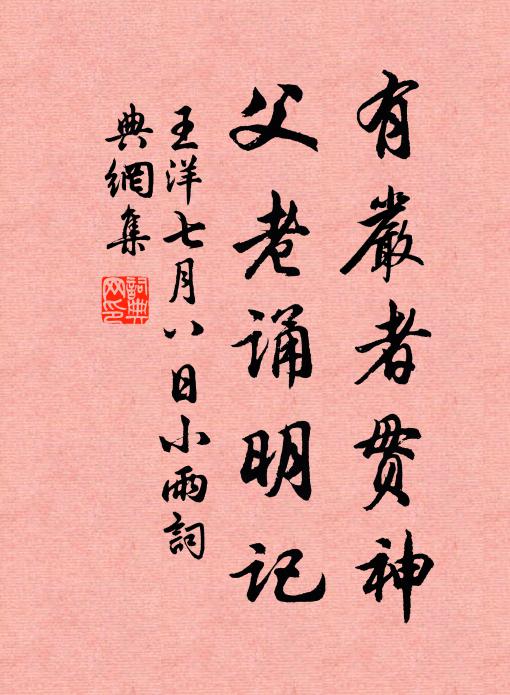 有嚴者贯神
父老诵明记
王洋七月八日小雨詞
典網集
詞典
网印